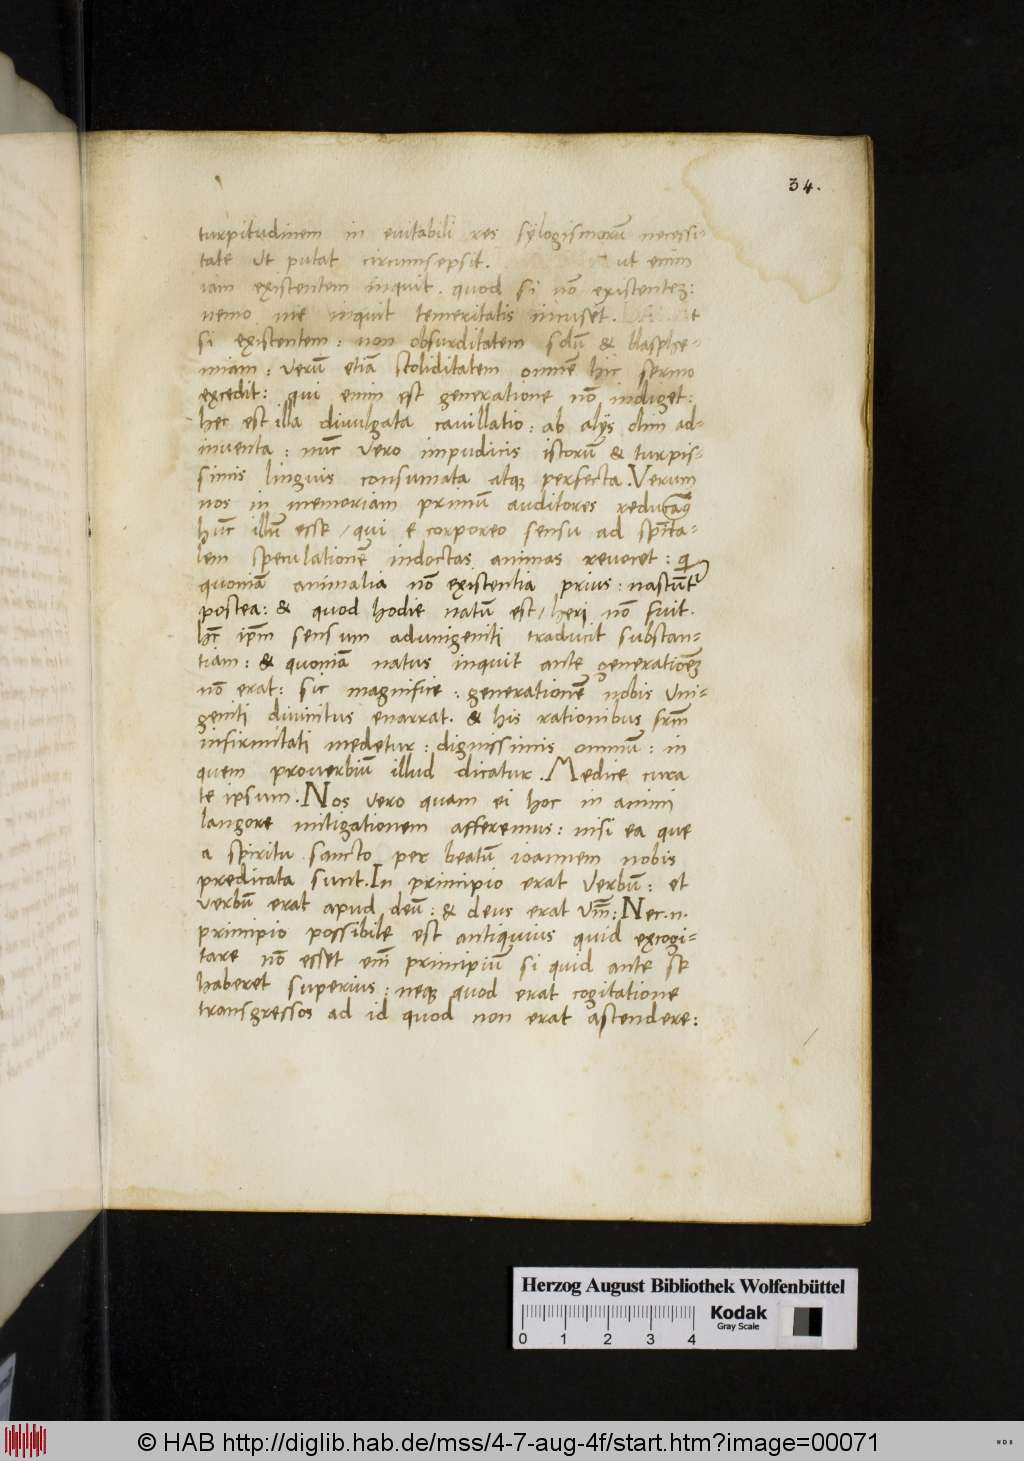 34.
turpitudinem in euitabili res sylogismorū necessi
tate ut putat circumsepsit. ut enim
iam existentem inquit. quod si nō existentez:
nemo me inquit temeritatis incuset.
si existentem: non obsurditatem solū & blasphe-
miam: verū etiā stoliditatem omnē hic sermo
excedit: qui enim est generatione nō indiget:
hec est illa diuulgata cauillatio: ab alijs olim ad-
inuenta: nūc vero impudicis istorū & turpis-
simis linguis consumata atqz perfecta. Verum
nos in memoriam primū auditores
hūc illū esse / qui e corporeo sensu ad sp̄ita-
lem speculationē indoctas animas reuocet:
quoniā animalia nō existentia prius: nascūt͛
postea: & quod hodie natū est / heri nō fuit.
hc̄ ip̄m sensum adunigeniti traducit substan-
tiam: & quoniā natus inquit ante generationēz
nō erat: sic magnifice: generationē nobis vni-
geniti diuinitus enarrat. & his rationibus fr̄m
infirmitati medetur: dignissimis omniū: in
quem prouerbiū illud dicatur. Medice cura
te ipsum. Nos vero quam ei hoc in animi
langore mitigationem afferemus: nisi ea que
a spiritu sancto per beatū ioannem nobis
predicata sunt. In principio erat verbū: et
verbū erat apud deū: & deus erat vm̄: Nec .n.
principio possibile est antiquius quid excogi-
tare nō esset em̄ principiū si quid ante se
haberet superius: neqz quod erat cogitatione
transgressos ad id quod non erat ascendere:
Herzog August Bibliothek Wolfenbüttel
0 1 2 3 4
Kodak
Gray Scale
© HAB http://diglib.hab.de/mss/4-7-aug-4f/start.htm?image=00071